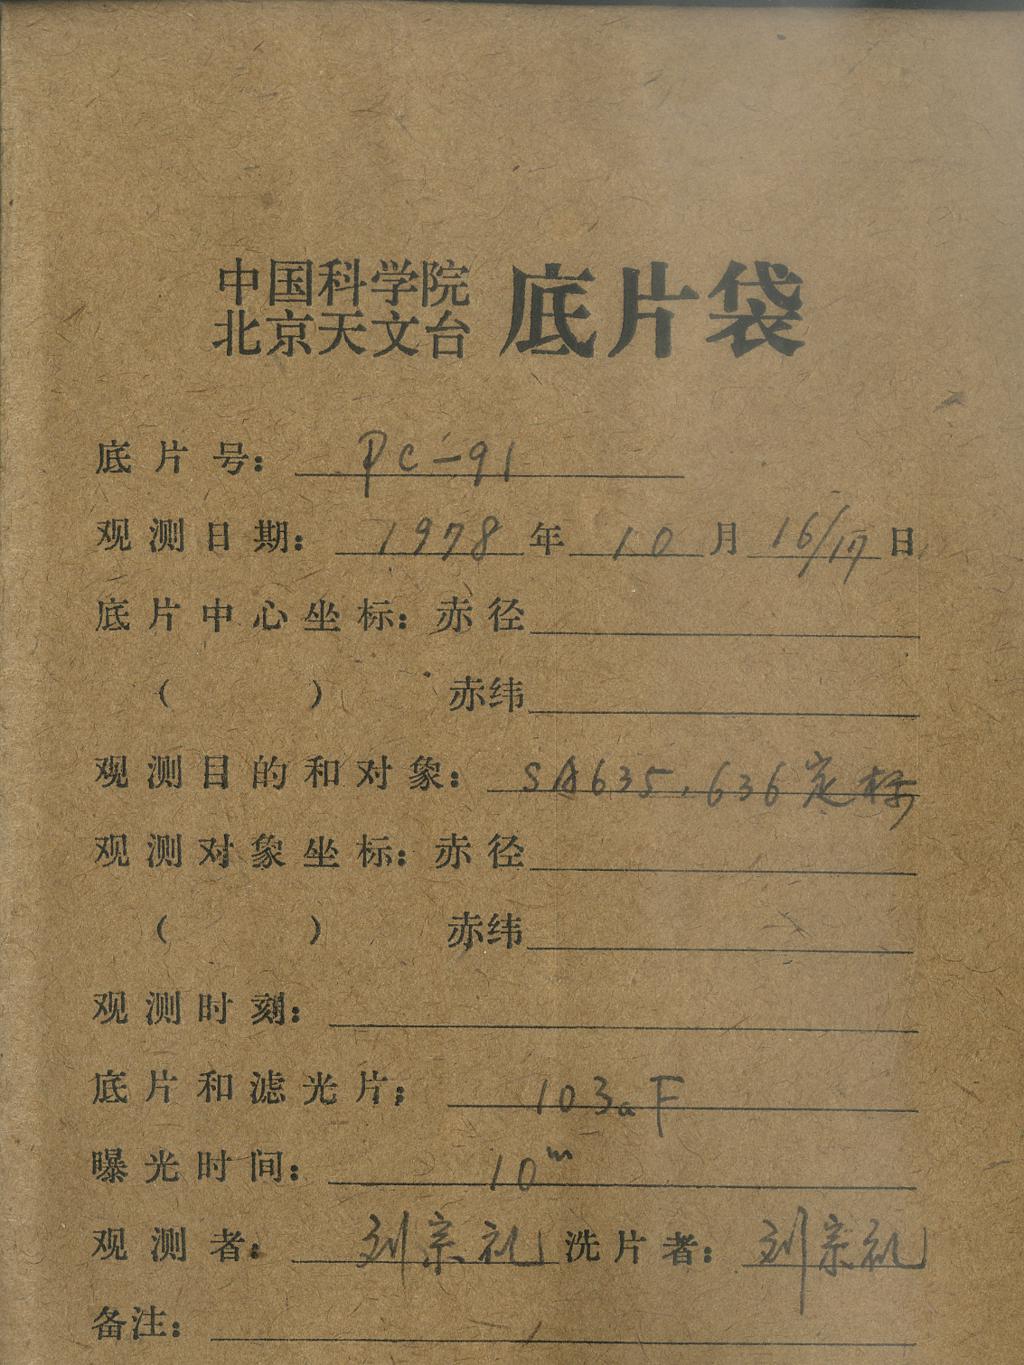 中国科学院
北京天文台 底片袋
底片号： PC-91
观测日期： 1978 年 10 月 16/17 日
底片中心坐标：赤径
（ ） 赤纬
观测目的和对象： SA635，636定标
观测对象坐标：赤径
（ ） 赤纬
观测时刻：
底片和滤光片； 103aF
曝光时间： 10m
观测者： 刘宗礼 洗片者： 刘宗礼
备注：